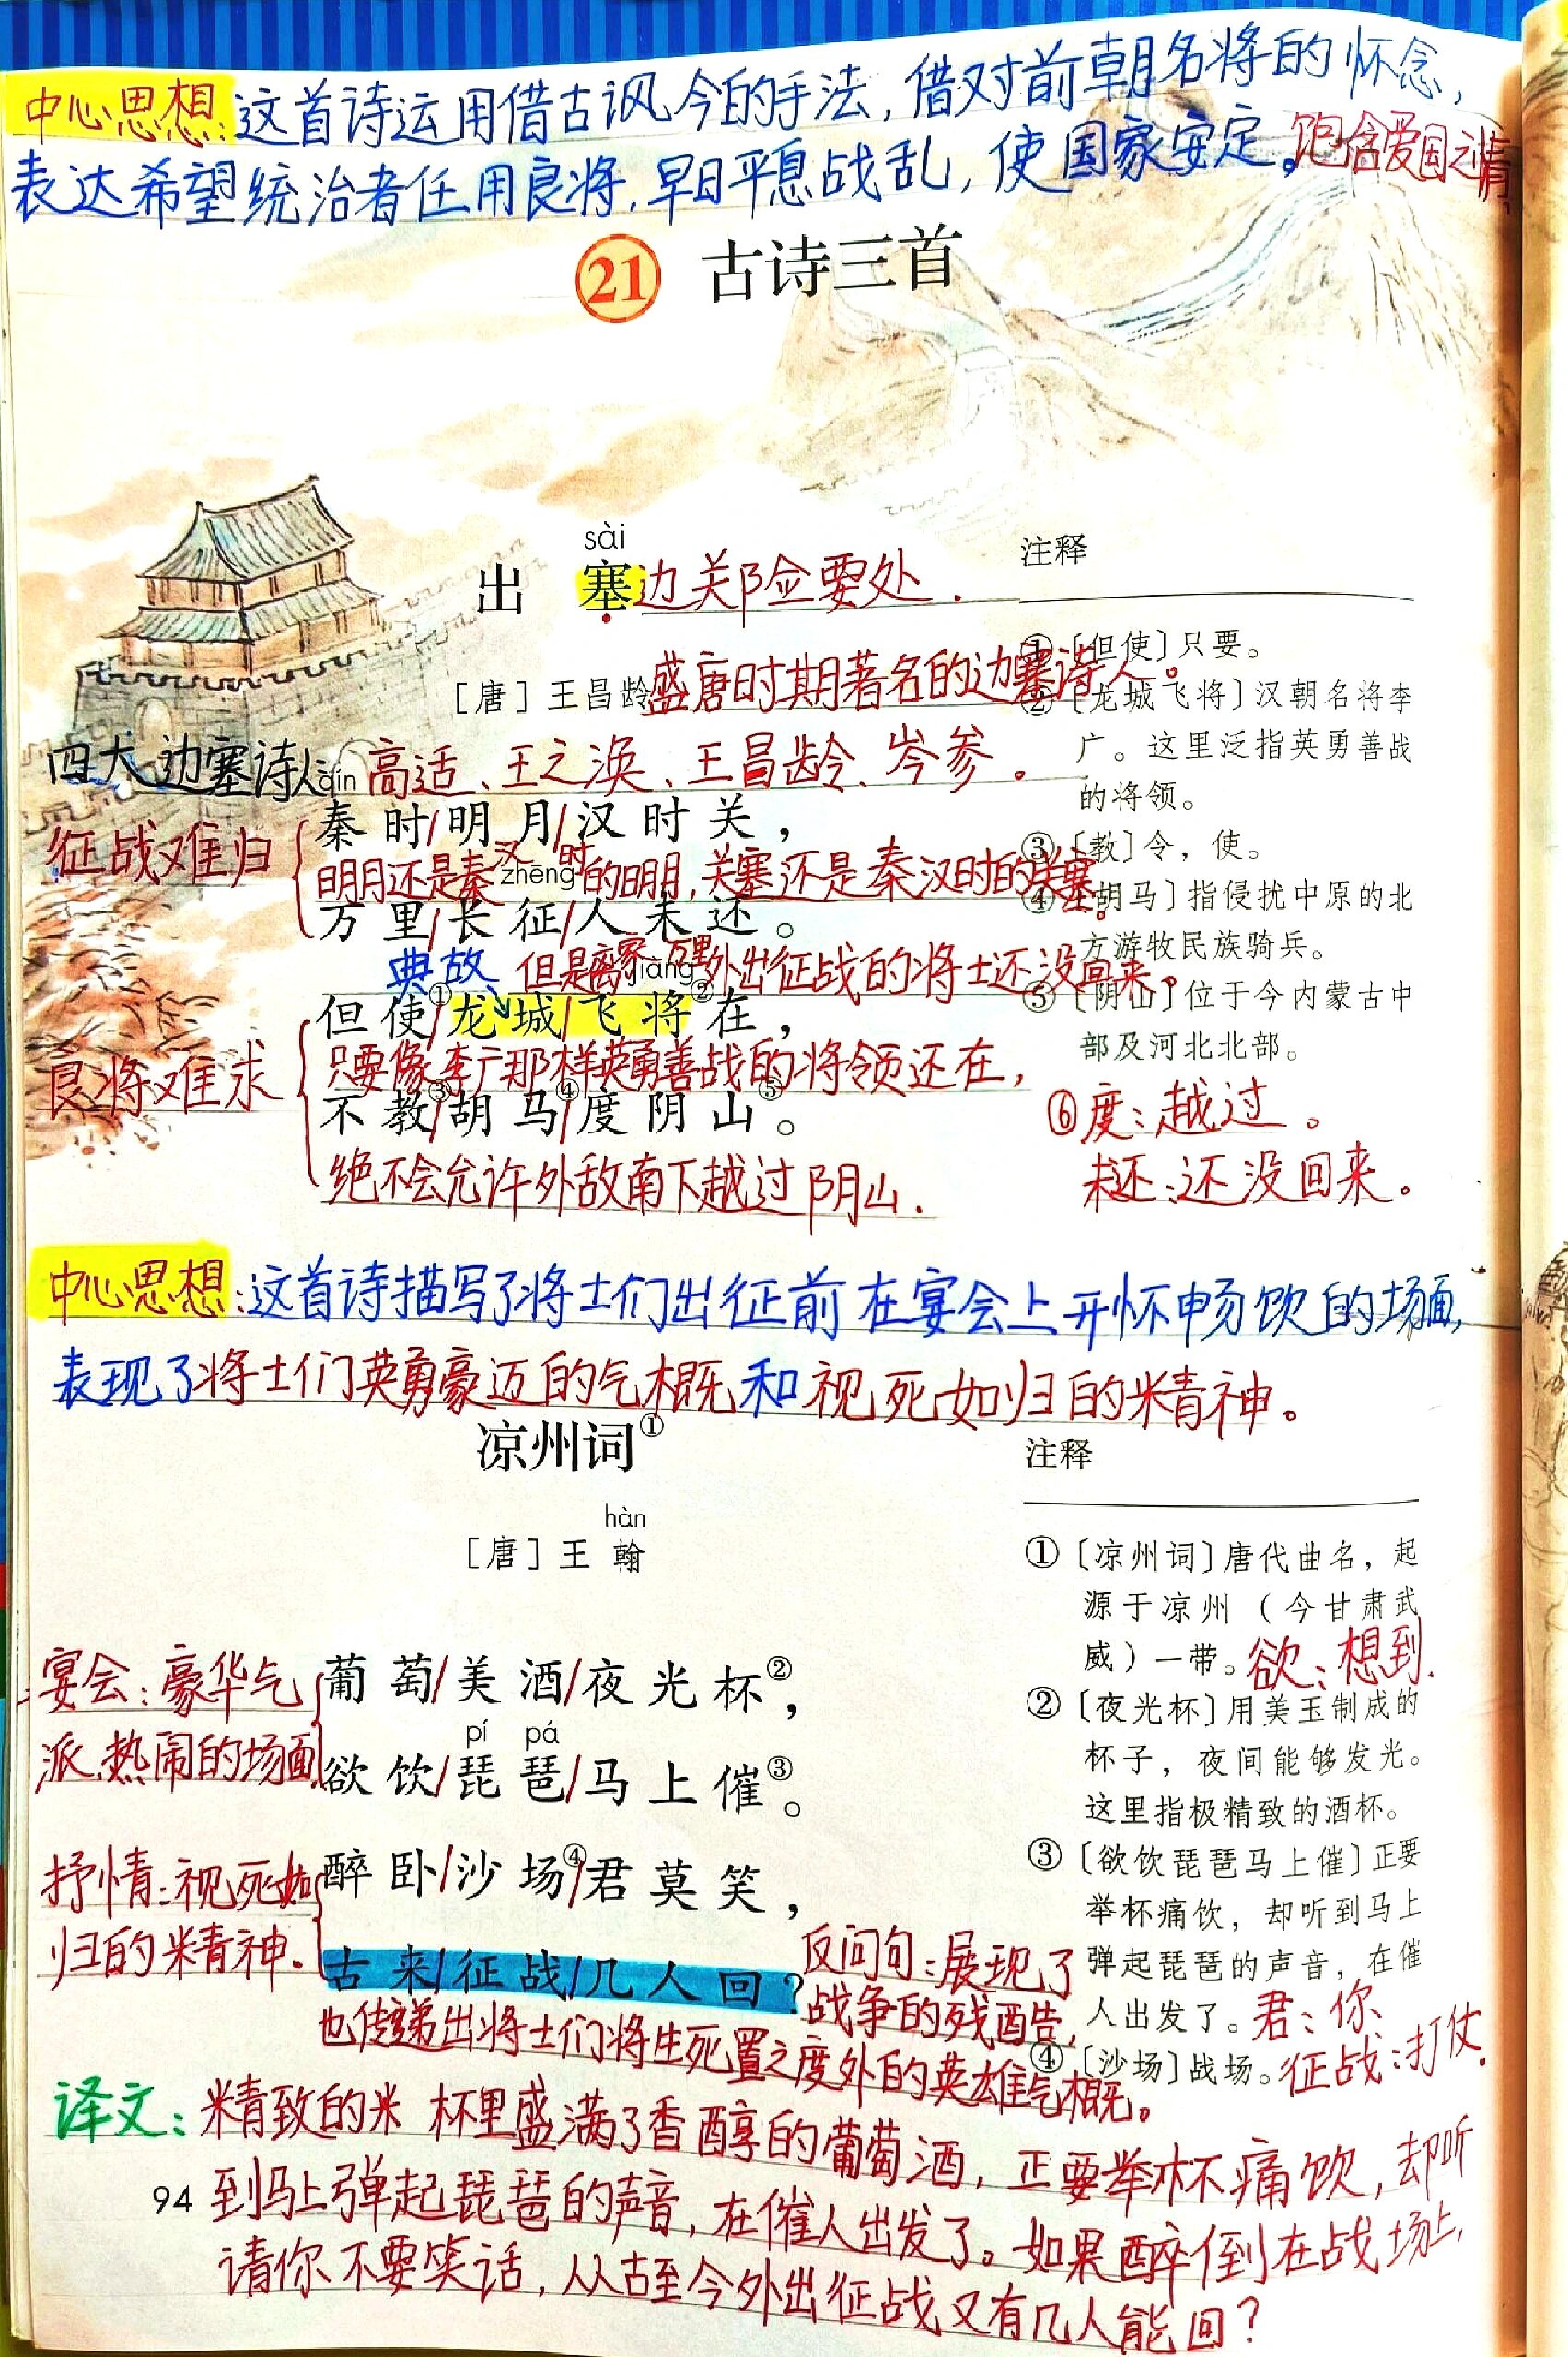 中心思想:这首诗运用借古讽今的手法,借对前朝名将的怀念,
表达希望统治者任用良将,早日平息战乱,使国家安定。饱含爱国之情
21 古诗三首
sài
出 塞 边关险要处.
[唐] 王昌龄 盛唐时期著名的边塞诗人。
四大边塞诗人 高适、王之涣、王昌龄、岑参。
qín
秦时/明月/汉时关,
征战难归
汉 时
明月还是秦 的明月,关塞还是秦汉时的关塞。
zhēng
万里/长征/人未还。
典故 但是离家万里外出征战的将士还没回来。
jiàng
但使①/龙城/飞将②在,
良将难求
只要像李广那样英勇善战的将领还在,
不教③/胡马④/度阴山⑤。
绝不会允许外敌南下越过阴山.
注释
①〔但使〕只要。
②〔龙城飞将〕汉朝名将李
广。这里泛指英勇善战
的将领。
③〔教〕令,使。
④〔胡马〕指侵扰中原的北
方游牧民族骑兵。
⑤〔阴山〕位于今内蒙古中
部及河北北部。
⑥度:越过。
未还:还没回来。
中心思想:这首诗描写了将士们出征前在宴会上开怀畅饮的场面,
表现了将士们英勇豪迈的气概和视死如归的精神。
凉州词①
hàn
[唐] 王 翰
宴会:豪华气
派、热闹的场面
葡萄/美酒/夜光杯②,
pí pá
欲饮/琵琶/马上催③。
抒情:视死如
归的精神.
醉卧/沙场④/君莫笑,
古来/征战/几人回?
反问句:展现了
战争的残酷,
也传递出将士们将生死置之度外的英雄气概。
注释
①〔凉州词〕唐代曲名,起
源于凉州(今甘肃武
威)一带。欲:想到.
②〔夜光杯〕用美玉制成的
杯子,夜间能够发光。
这里指极精致的酒杯。
③〔欲饮琵琶马上催〕正要
举杯痛饮,却听到马上
弹起琵琶的声音,在催
人出发了。君:你
④〔沙场〕战场。征战:打仗.
译文:精致的米 杯里盛满了香醇的葡萄酒,正要举杯痛饮,却听
到马上弹起琵琶的声音,在催人出发了。如果醉倒在战场上,
请你不要笑话,从古至今外出征战又有几人能回?
94